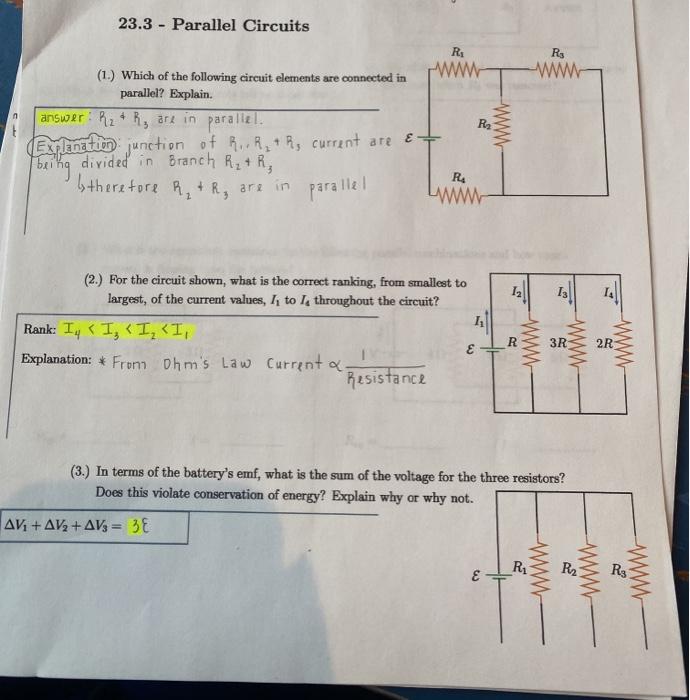 23.3 - Parallel Circuits
(1.) Which of the following circuit elements are connected in
parallel? Explain.
answer: R₂ + R₃ are in parallel.
Explanation: junction of R₁, R₂ + R₃ current are
being divided in Branch R₂ + R₃
↳therefore R₂ + R₃ are in parallel
R₁
R₃
R₂
ℰ
R₄
(2.) For the circuit shown, what is the correct ranking, from smallest to
largest, of the current values, I₁ to I₄ throughout the circuit?
Rank: I₄ < I₃ < I₂ < I₁
Explanation: * From Ohm's Law Current ∝ 1
Resistance
I₂ I₃ I₄
I₁
ℰ R 3R 2R
(3.) In terms of the battery's emf, what is the sum of the voltage for the three resistors?
Does this violate conservation of energy? Explain why or why not.
ΔV₁ + ΔV₂ + ΔV₃ = 3ℰ
ℰ R₁ R₂ R₃